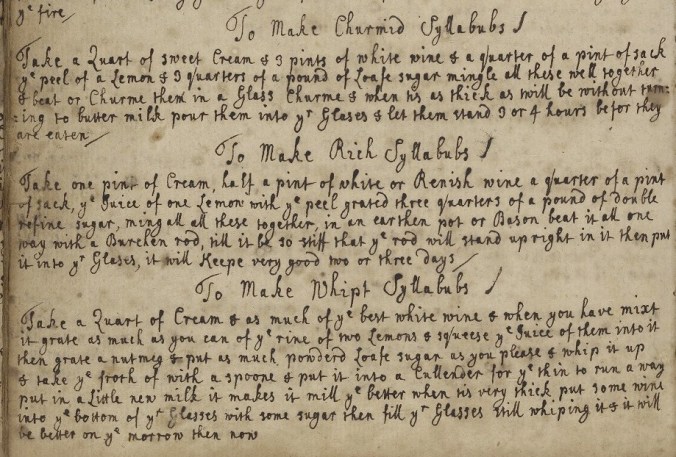 yᵉ fire
To Make Churmid Syllabubs
Take a Quart of sweet Cream & 3 pints of white wine & a quarter of a pint of sack
yᵉ peel of a Lemon & 3 quarters of a pound of Loafe sugar mingle all these well together
& beat or Churme them in a Glass Churme & when tis as thick as will be without turn:
:ing to butter milk pour them into yʳ Glases & let them stand 3 or 4 hours befor they
are eaten
To Make Rich Syllabubs
Take one pint of Cream, half a pint of white or Renish wine a quarter of a pint
of sack, yᵉ Juice of one Lemon with yᵉ peel grated three quarters of a pound of double
refine sugar, mingall all these together, in an earthen pot or Bason beat it all one
way with a Burchen rod, till it be so stiff that yᵉ rod will stand up right in it then put
it into yʳ Glases, it will Keepe very good two or three days
To Make Whipt Syllabubs
Take a Quart of Cream & as much of yᵉ best white wine & when you have mixt
it grate as much as you can of yᵉ rine of two Lemons & squeese yᵉ Juice of them into it
then grate a nutmeg & put as much ponderd Loafe sugar as you please & whip it up
& take yᵉ froth of with a spoone & put it into a Cullender for yᵉ thin to run a way
put in a Little new milk it makes it mill yᵉ better when tis very thick put some wine
into yᵉ bottom of yʳ Glasses with some sugar then fill yʳ Glasses still whiping it & it will
be better on yᵉ morrow then now